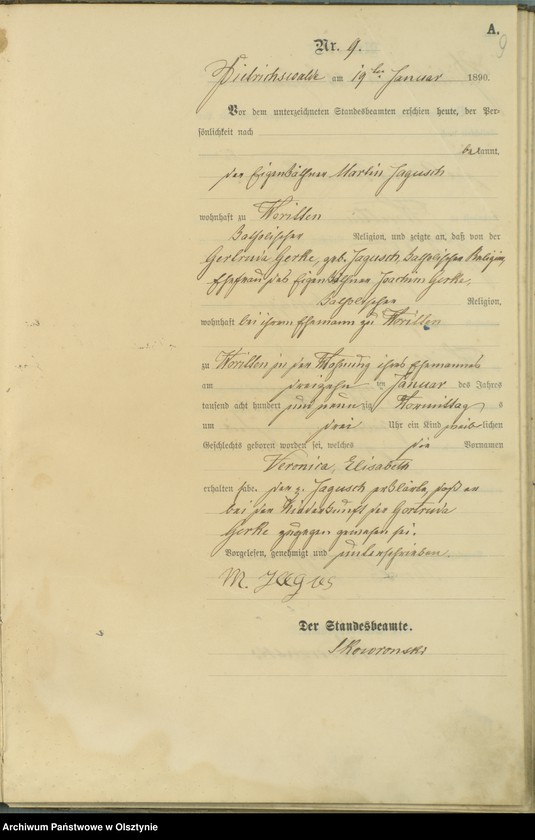 A.
9
Nr. 9.
Dietrichswalde am 19ten Januar 1890.
Vor dem unterzeichneten Standesbeamten erschien heute, der Per-
sönlichkeit nach
bekannt,
der Eigenkäthner Martin Jagusch
wohnhaft zu Woritten
katholischer Religion, und zeigte an, daß von der
Gertruda Gerke, geb. Jagusch, katholischer Religion,
Ehefrau des Eigenkäthner Joachim Gerke,
katholischer Religion,
wohnhaft bei ihrem Ehemann zu Woritten
zu Woritten in der Wohnung ihres Ehemannes
am dreizehn ten Januar des Jahres
tausend acht hundert und neunzig Vormittags
um drei Uhr ein Kind weiblichen
Geschlechts geboren worden sei, welches die Vornamen
Veronica, Elisabeth
erhalten habe. Der p. Jagusch erklärte, daß er
bei der Niederkunft der Gertruda
Gerke zugegen gewesen sei.
Vorgelesen, genehmigt und unterschrieben.
M. Jagus
Der Standesbeamte.
Skowronski
Archiwum Państwowe w Olsztynie